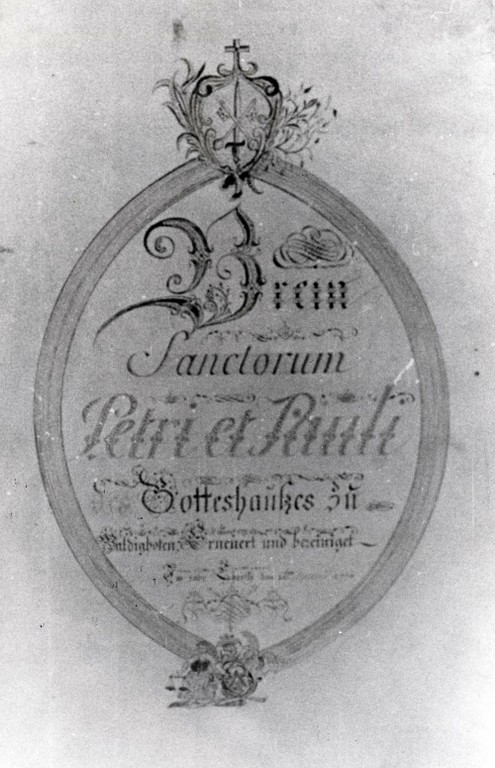 Urein
Sanctorum
Petri et Pauli
des Gotteshaußes zu
Waldighofen, Erneuert und bereiniget
Im Jahr